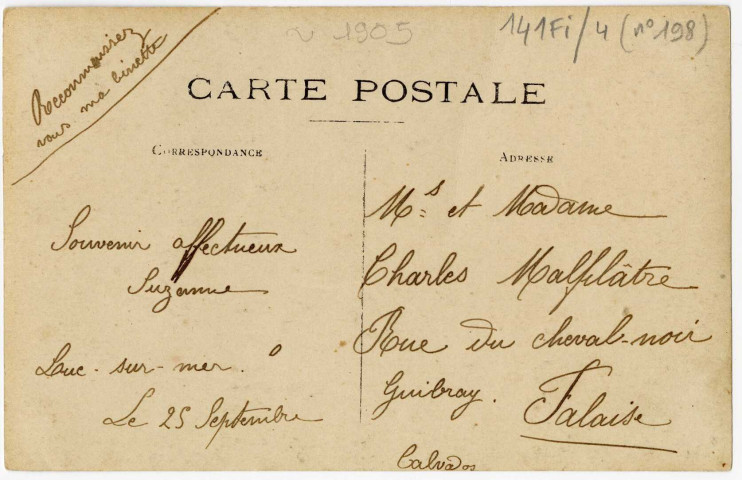 ~ 1905
141Fi/4 (n°198)
Reconnaissiez
vous ma binette
CARTE POSTALE
CORRESPONDANCE
ADRESSE
Souvenir affectueux
Suzanne
Luc-sur-mer.
Le 25 Septembre
Ms et Madame
Charles Malfilâtre
Rue du cheval-noir
Guibray. Falaise
Calvados